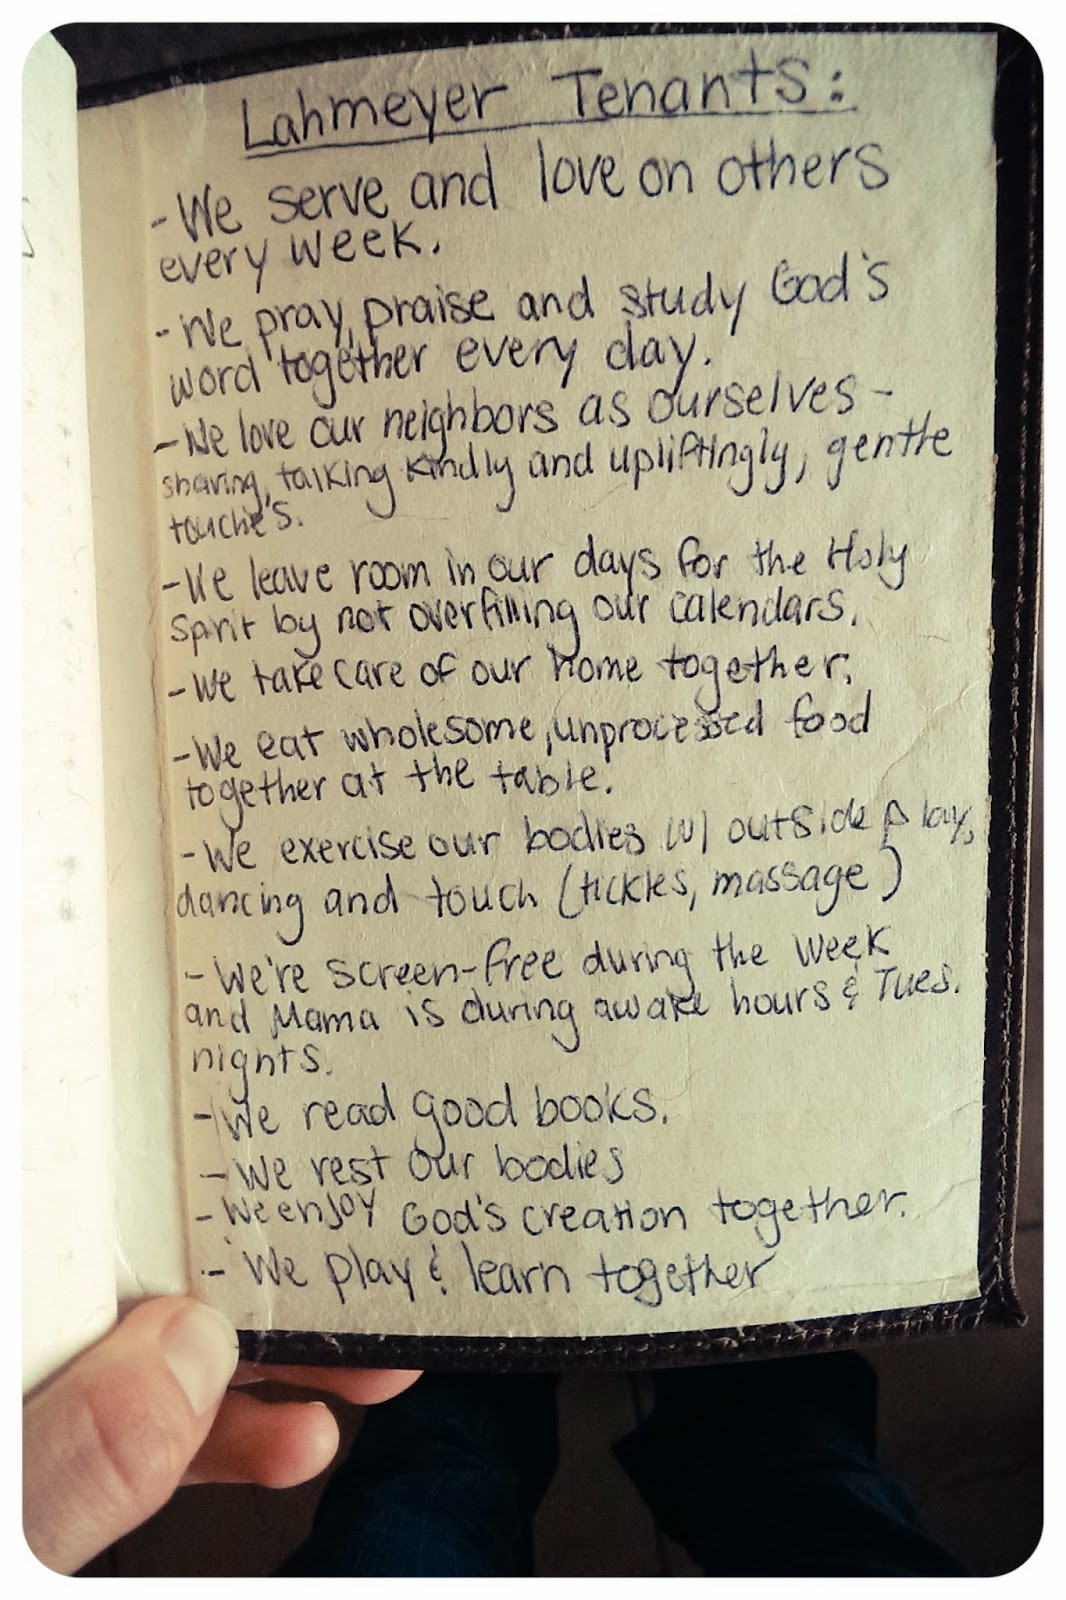 Lahmeyer Tenants:
-We serve and love on others
every week.
-We pray, praise and study God's
word together every day.
-We love our neighbors as ourselves-
sharing, talking kindly and upliftingly, gentle
touches.
-We leave room in our days for the Holy
Spirit by not overfilling our calendars.
-We take care of our home together.
-We eat wholesome, unprocessed food
together at the table.
-We exercise our bodies w/ outside play,
dancing and touch (tickles, massage)
-We're screen-free during the week
and Mama is during awake hours & Tues.
nights.
-We read good books.
-We rest our bodies
-We enjoy God's creation together.
-We play & learn together